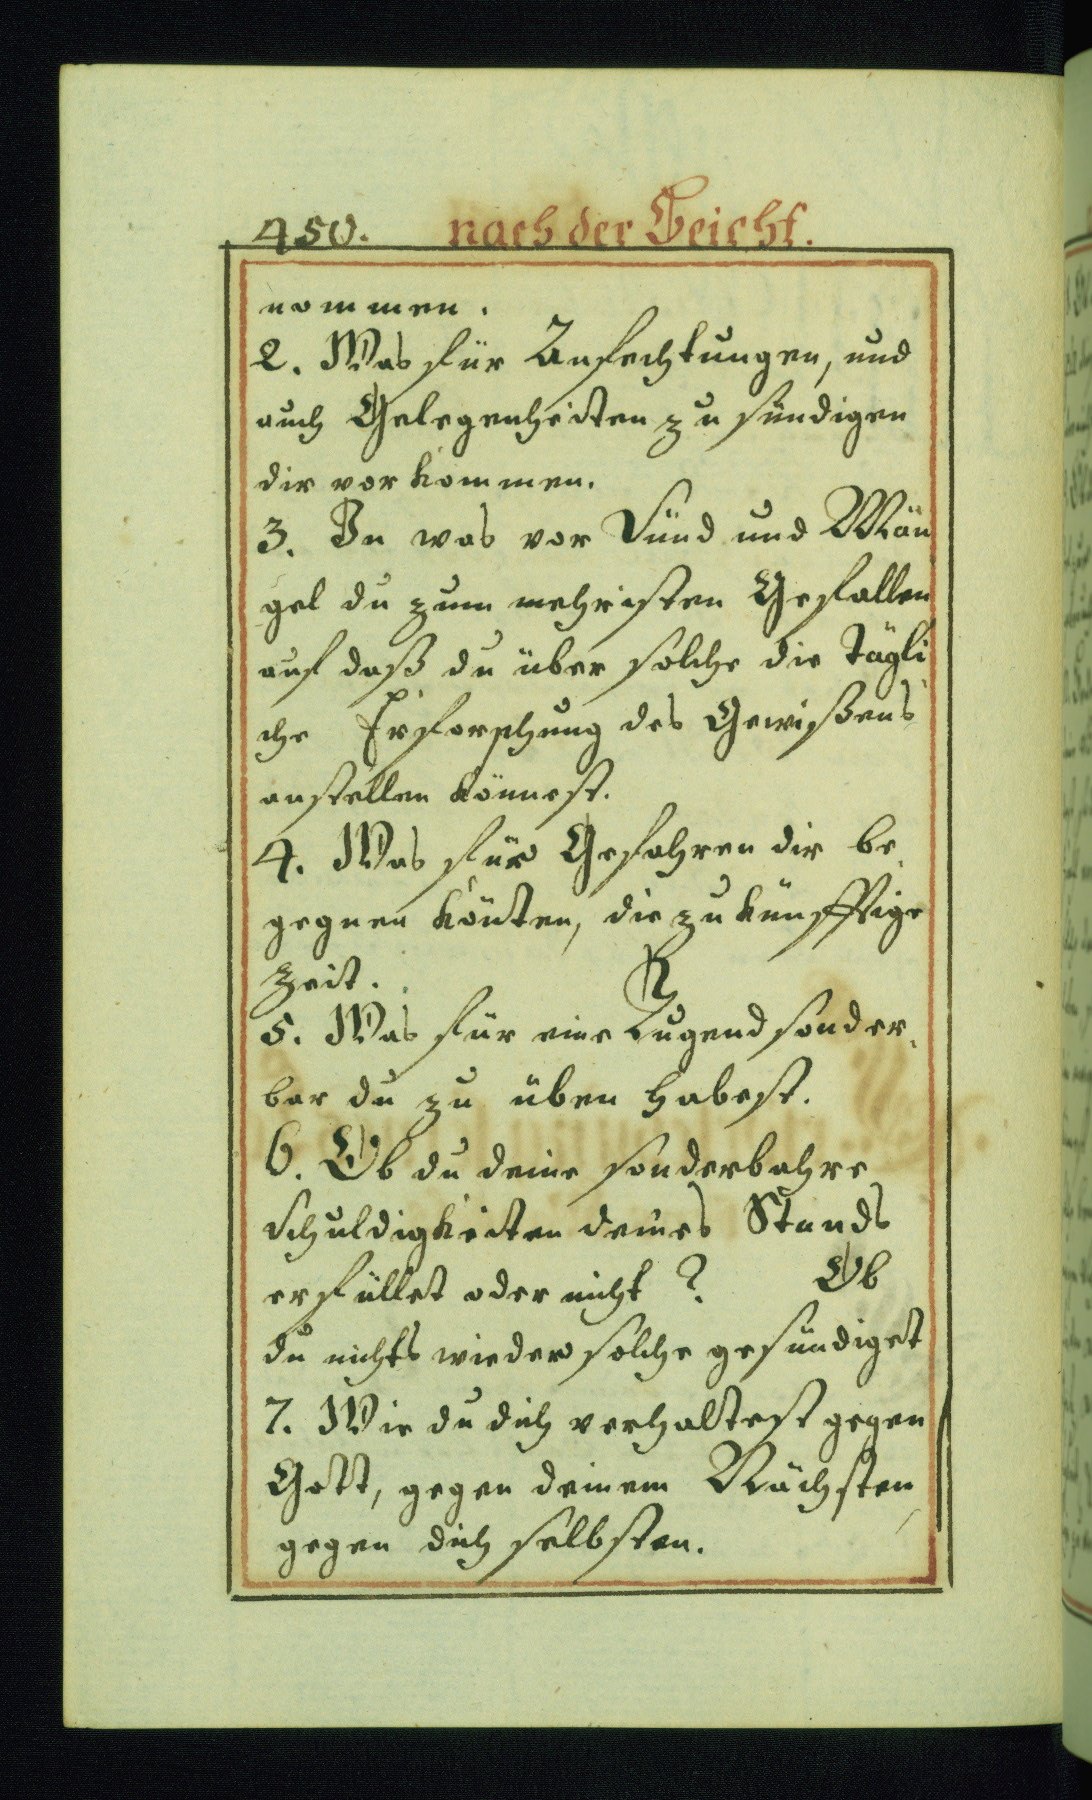 450. nach der Beicht.
nommen.
2. Was für Anfechtungen, und
auch Gelegenheiten zu sündigen
dir vor kommen.
3. In was vor Sünd und Män
gel du zum mehristen Gefallen
auf daß du über solche die Tägli
che Erforschung des Gewißens
anstellen könnest.
4. Was für Gefahren dir be,
gegnen könten, die zukünfftige
Zeit.
5. Was für eine Tugend sonder,
bar du zu üben habest.
6. Ob du deine sonderbahre
Schuldigkeiten deines Stands
erfüllet oder nicht? Ob
du nichts wieder solche gesündiget
7. Wie du dich verhaltest gegen
Gott, gegen deinem Nächsten,
gegen dich selbsten.